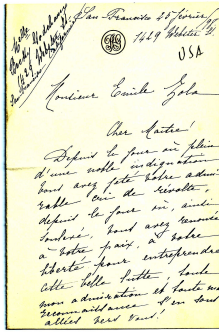 San Francisco 25 février
1429 Webster St.
USA
Monsieur Emile Zola
Cher Maitre!
Depuis le jour où plein
d'une noble indignation
vous avez jeté votre admi
rable cri de révolte,
depuis le jour où, ainsi
soulevé, vous avez renoncé
à votre paix, à votre
liberté pour entreprendre
cette belle lutte, toute
mon admiration et toute ma
reconnaissance s'en sont
allées vers vous!